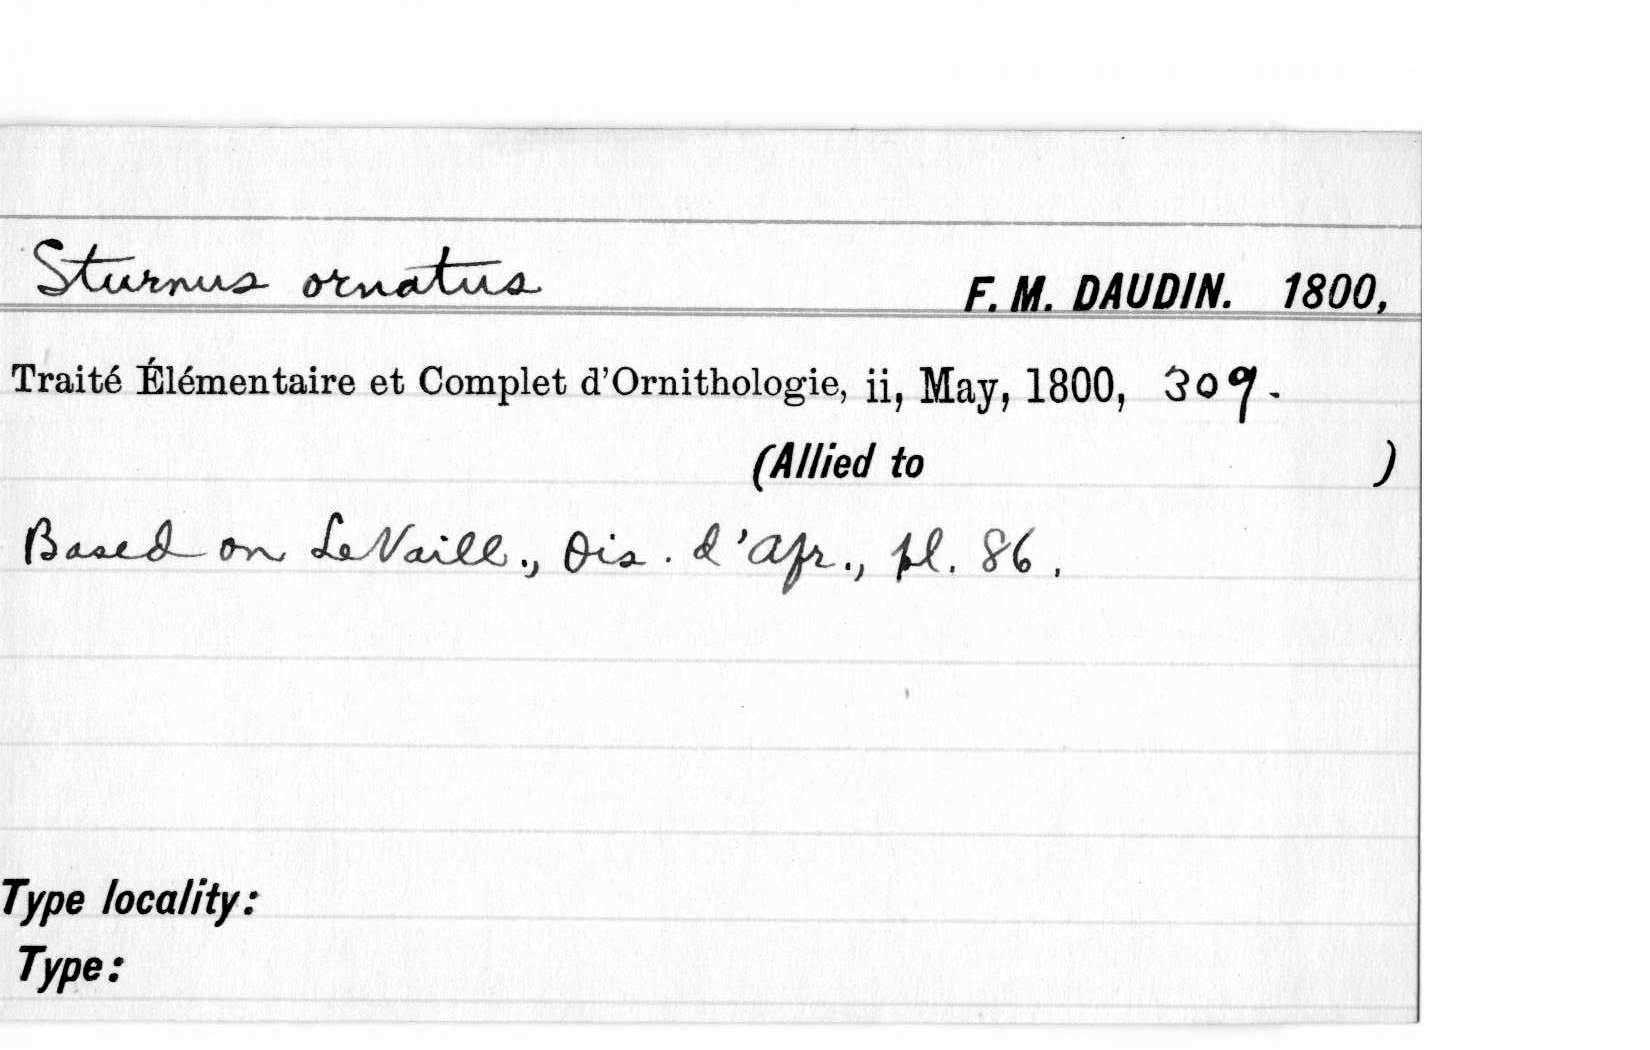 Sturnus ornatus F. M. DAUDIN. 1800,
Traité Élémentaire et Complet d'Ornithologie, ii, May, 1800, 309.
(Allied to )
Based on LeVaill., Ois. d'Afr., pl. 86.
Type locality:
Type: